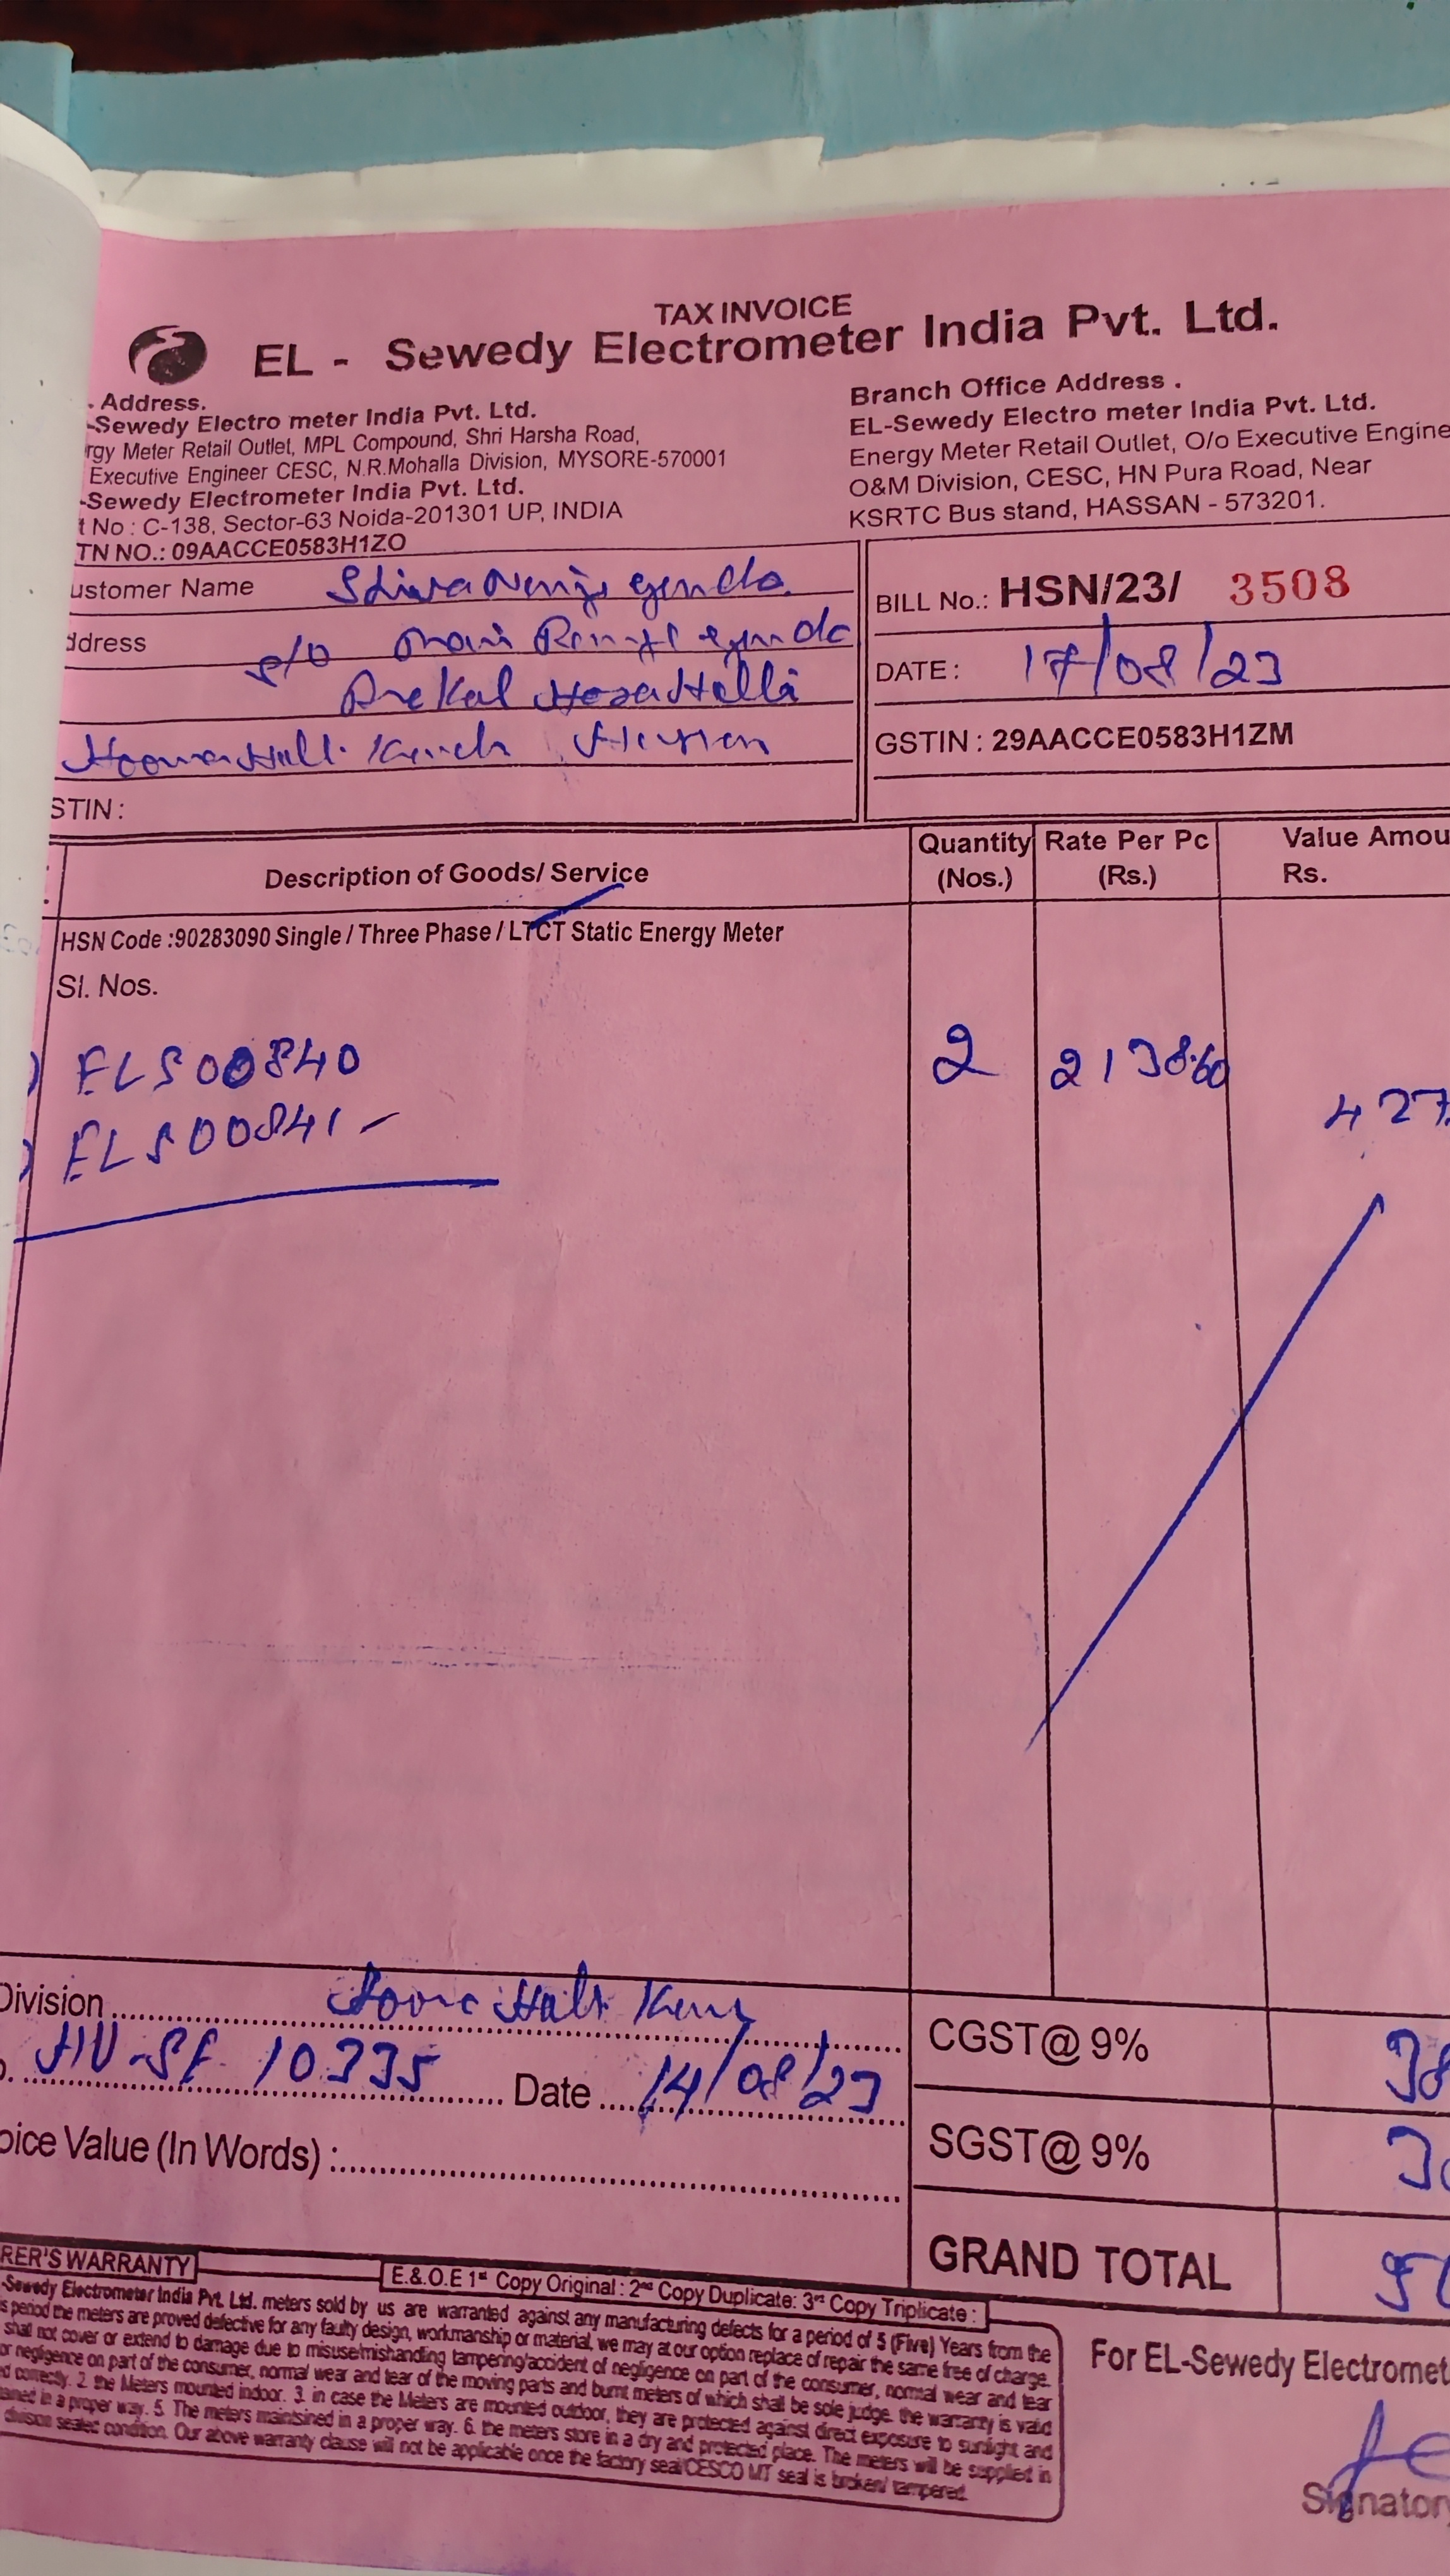 TAX INVOICE
EL - Sewedy Electrometer India Pvt. Ltd.
. Address.
-Sewedy Electro meter India Pvt. Ltd.
rgy Meter Retail Outlet, MPL Compound, Shri Harsha Road,
Executive Engineer CESC, N.R.Mohalla Division, MYSORE-570001
-Sewedy Electrometer India Pvt. Ltd.
t No : C-138, Sector-63 Noida-201301 UP, INDIA
TN NO.: 09AACCE0583H1ZO
Branch Office Address .
EL-Sewedy Electro meter India Pvt. Ltd.
Energy Meter Retail Outlet, O/o Executive Engine
O&M Division, CESC, HN Pura Road, Near
KSRTC Bus stand, HASSAN - 573201.
ustomer Name
ddress S/O
STIN :
BILL No.: HSN/23/ 3508
DATE : 17/08/23
GSTIN : 29AACCE0583H1ZM
Description of Goods/ Service
Quantity (Nos.)
Rate Per Pc (Rs.)
Value Amou Rs.
HSN Code :90283090 Single / Three Phase / LTCT Static Energy Meter
Sl. Nos.
) ELS00840 2 2138.60 427
) ELS00841 -
Division
HN-SF 10335 Date 14/08/23
oice Value (In Words) :
CGST@ 9% 38
SGST@ 9%
GRAND TOTAL
RER'S WARRANTY
E.& O.E 1st Copy Original : 2nd Copy Duplicate: 3rd Copy Triplicate :
-Sewedy Electrometer India Pvt. Ltd. meters sold by us are warranted against any manufacturing defects for a period of 5 (Five) Years from the
s period the meters are proved defective for any faulty design, workmanship or material, we may at our option replace of repair the same free of charge.
shall not cover or extend to damage due to misuse/mishandling tampering/accident of negligence on part of the consumer, normal wear and tear
or negligence on part of the consumer, normal wear and tear of the moving parts and burnt meters of which shall be sole judge. the warranty is valid
ed correctly. 2. the Meters mounted indoor. 3. in case the Meters are mounted outdoor, they are protected against direct exposure to sunlight and
ained in a proper way. 5. The meters maintsined in a proper way. 6. the meters store in a dry and protected place. The meters will be supplied in
division sealed condition. Our above warranty clause will not be applicable once the factory seal/CESCO MT seal is broken/ tampered.
For EL-Sewedy Electromet
Signatory